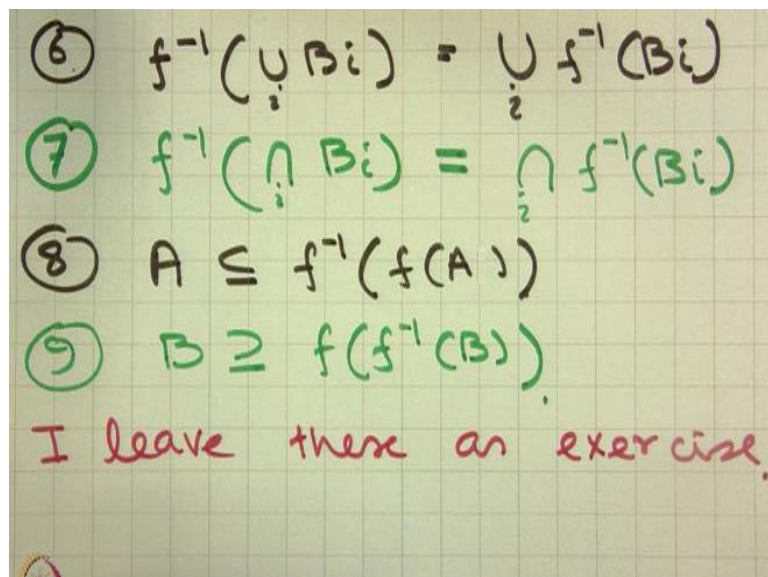 ⑥ f⁻¹(∪ᵢ Bi) = ∪ᵢ f⁻¹(Bi)
⑦ f⁻¹(∩ᵢ Bi) = ∩ᵢ f⁻¹(Bi)
⑧ A ⊆ f⁻¹(f(A))
⑨ B ⊇ f(f⁻¹(B)).
I leave these as exercise.